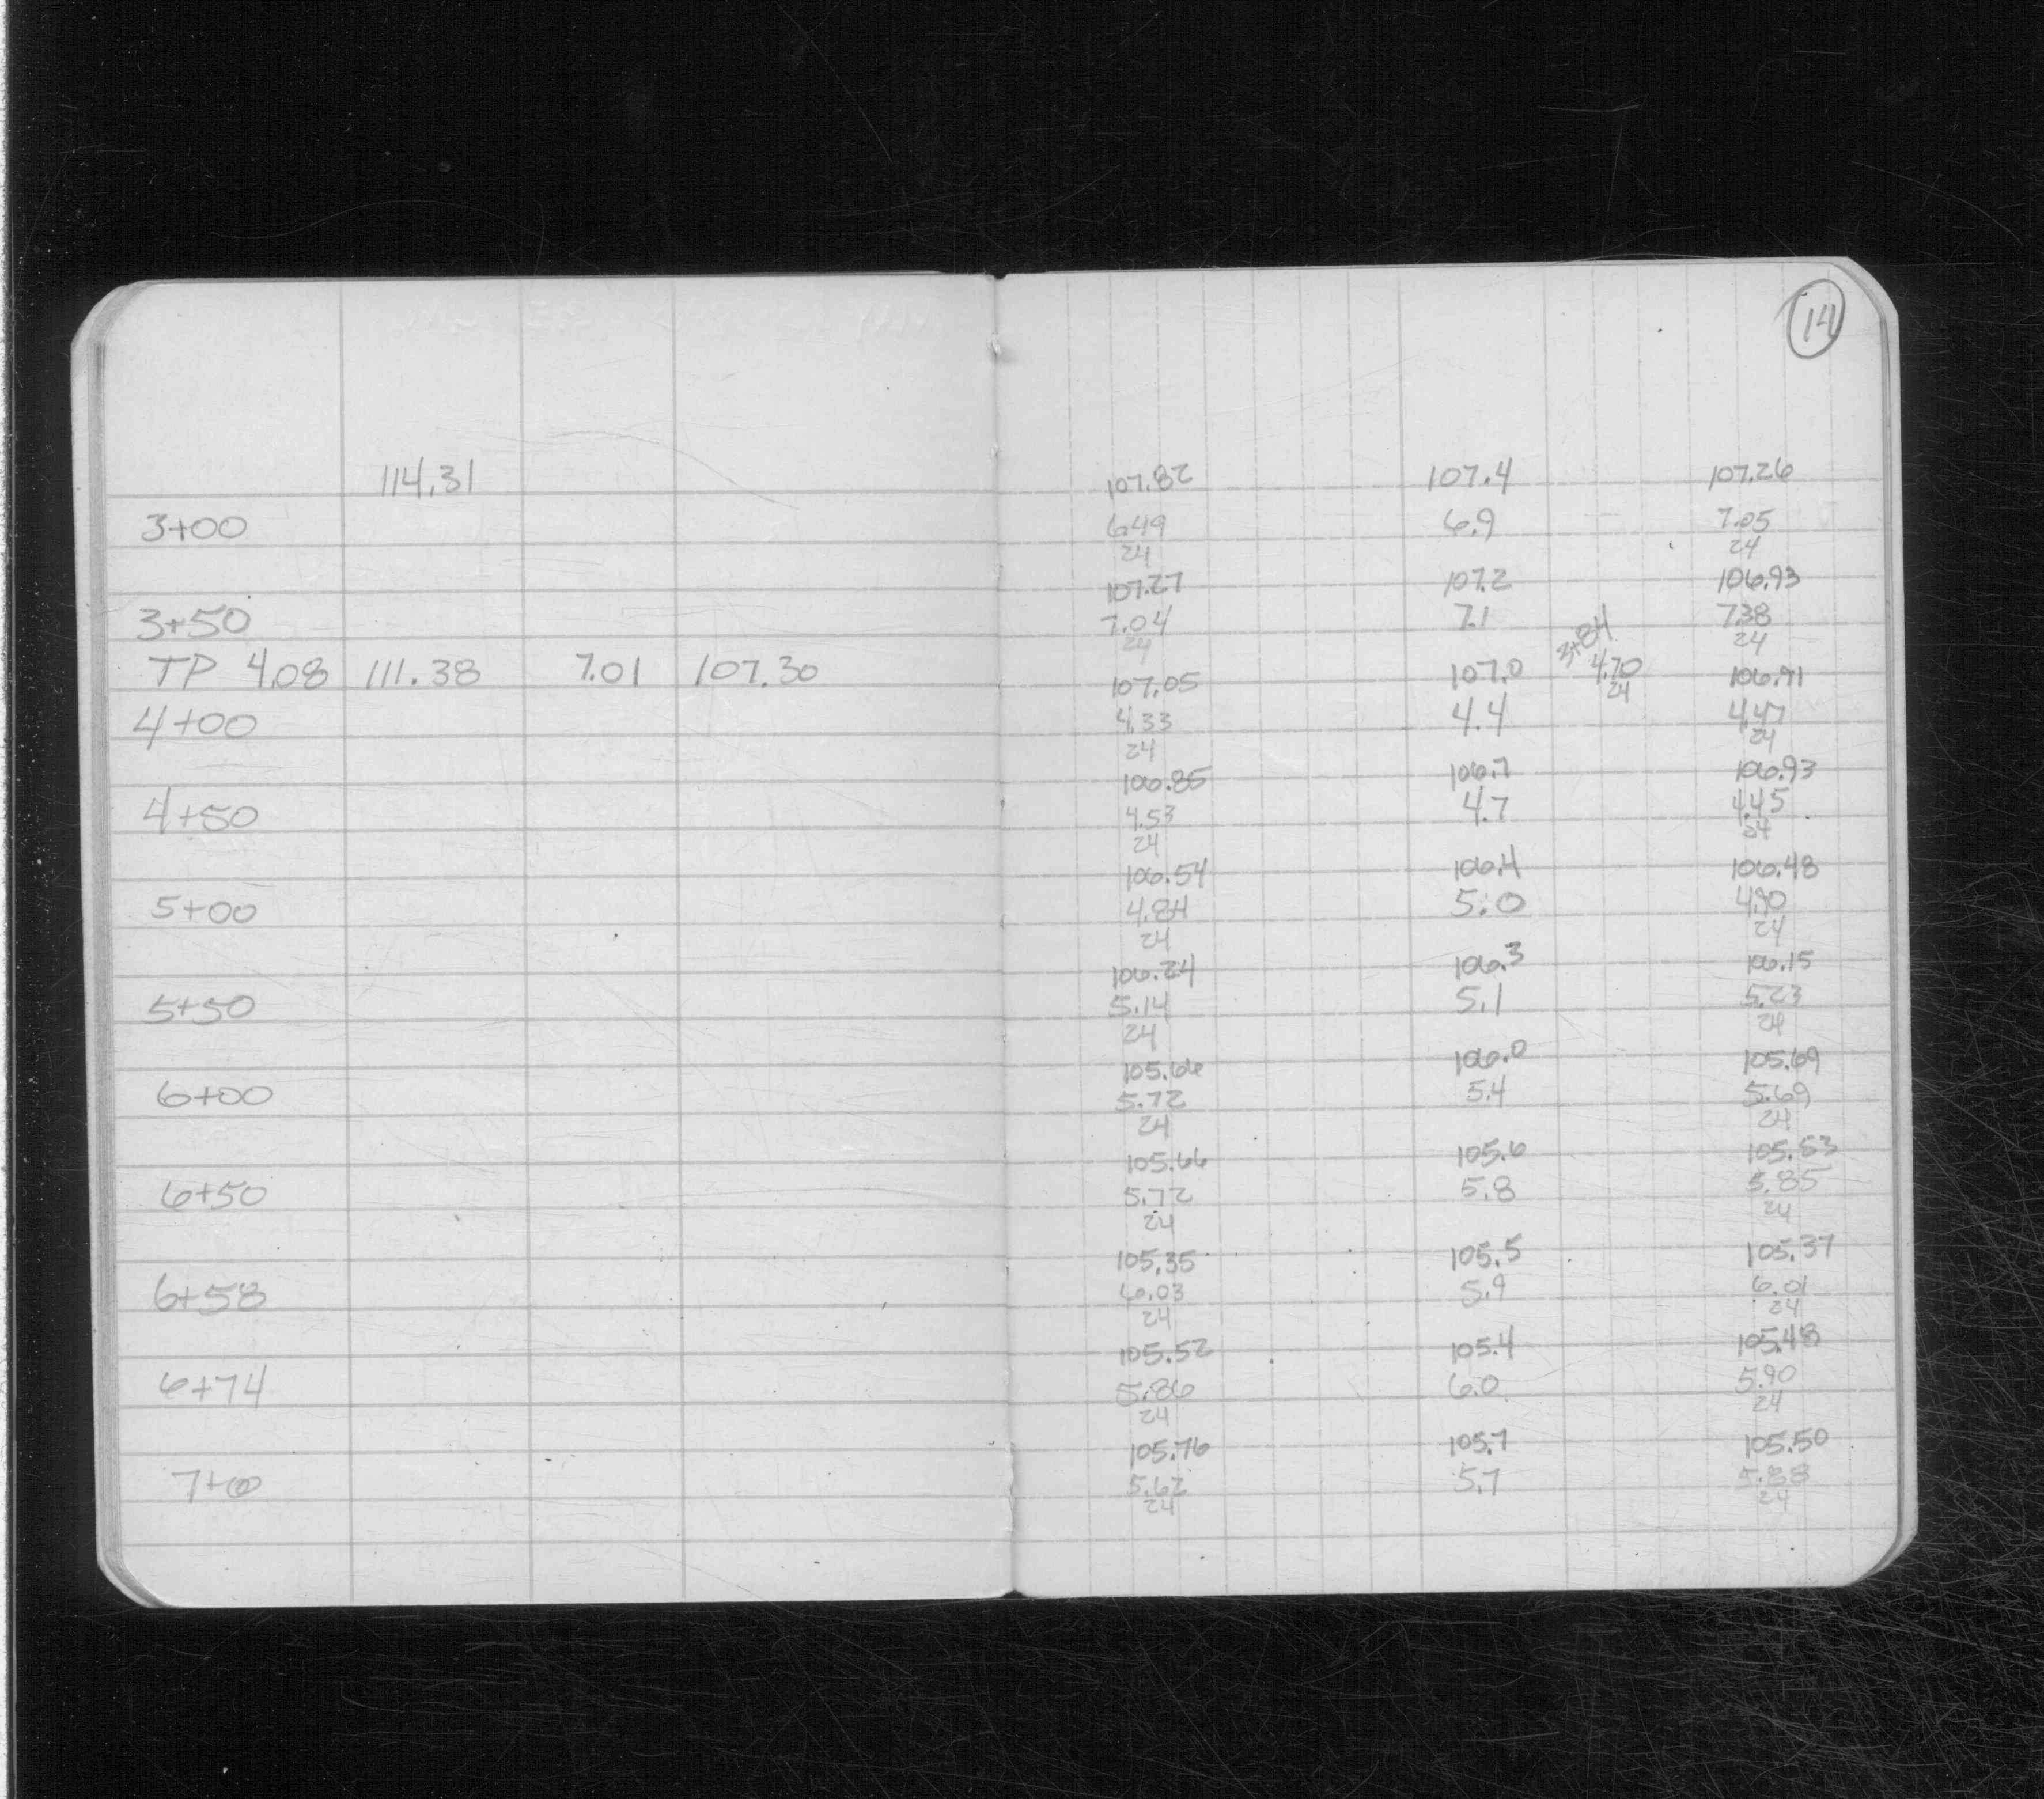 14
114.31 107.82 107.4 107.26
3+00 6.49 6.9 7.05
24 24
107.27 107.2 106.93
3+50 7.04 7.1 7.38
24 3+84 24
TP 4.08 111.38 7.01 107.30 107.05 107.0 4.70 106.91
24
4+00 4.33 4.4 4.47
24 24
106.85 106.7 106.93
4+50 4.53 4.7 4.45
24 24
106.54 106.4 106.48
5+00 4.84 5.0 4.90
24 24
106.24 106.3 106.15
5+50 5.14 5.1 5.23
24 24
105.66 106.0 105.69
6+00 5.72 5.4 5.69
24 24
105.66 105.6 105.53
6+50 5.72 5.8 5.85
24 24
105.35 105.5 105.37
6+58 6.03 5.9 6.01
24 24
105.52 105.4 105.48
6+74 5.86 6.0 5.90
24 24
105.76 105.7 105.50
7+00 5.62 5.7 5.88
24 24